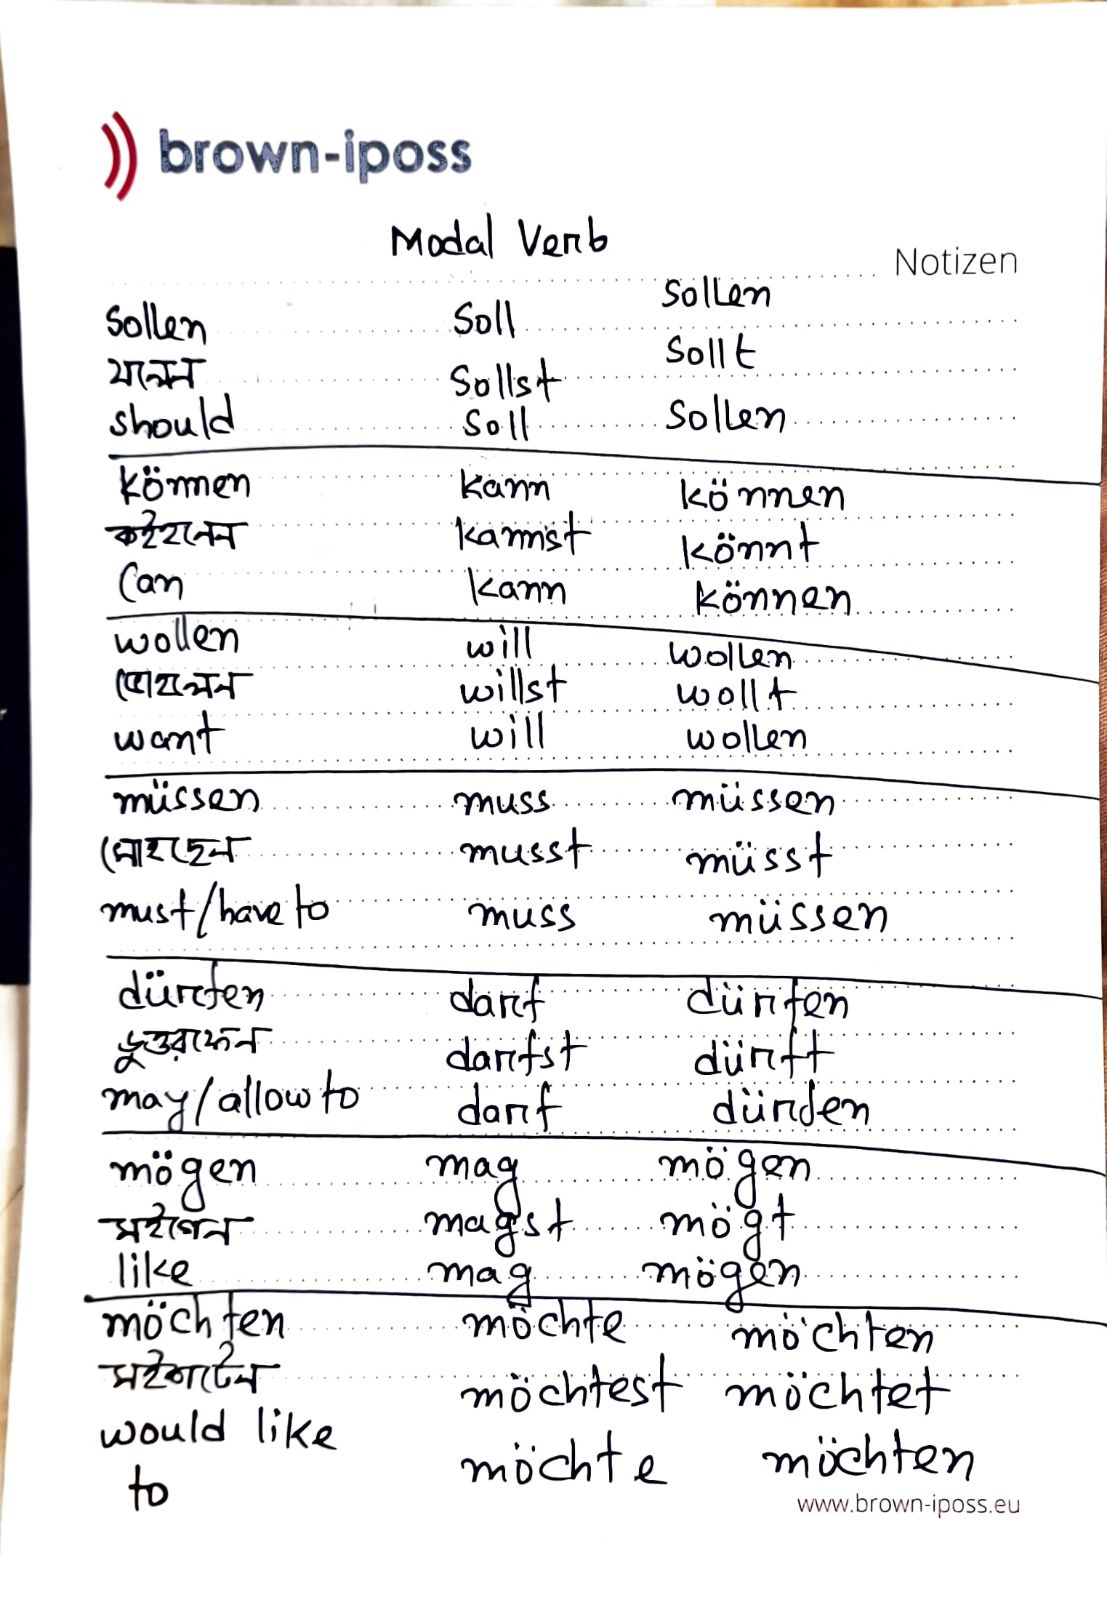 brown-iposs
Modal Verb
Notizen
sollen soll sollen
sollst sollt
should soll sollen
können kann können
কইহনেন kannst könnt
Can kann können
wollen will wollen
willst wollt
want will wollen
müssen muss müssen
musst müsst
must/have to muss müssen
dürfen darf dürfen
darfst dürft
may/allow to darf dürfen
mögen mag mögen
মইগেন magst mögt
like mag mögen
möchten möchte möchten
möchtest möchtet
would like möchte möchten
to
www.brown-iposs.eu